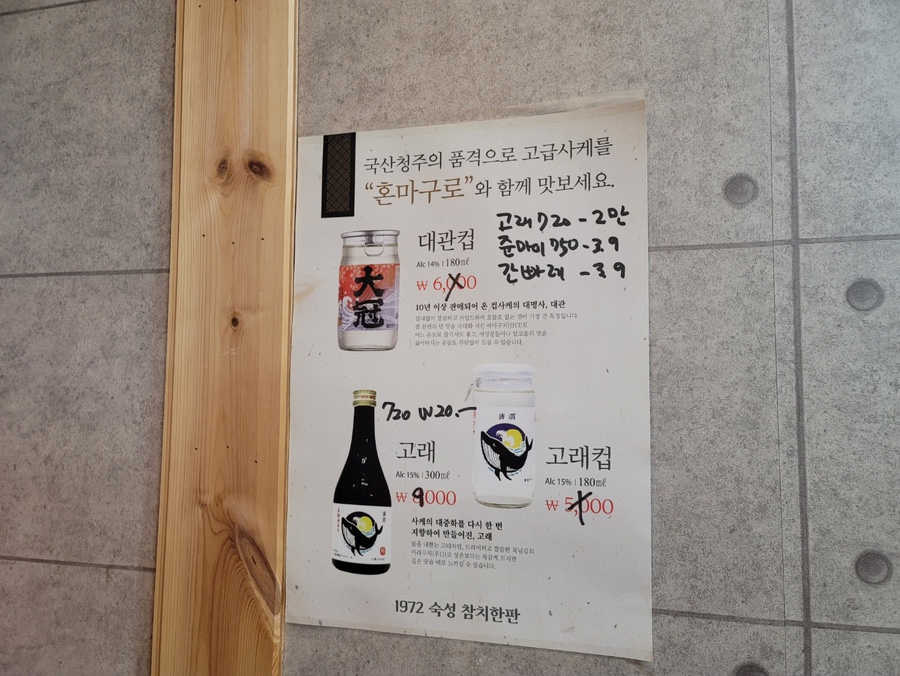 국산청주의 품격으로 고급사케를
“혼마구로”와 함께 맛보세요.
고래 720 - 2만
준마이 750 - 3.9
간빠레 - 3.9
대관컵
Alc 14% | 180㎖
₩ 6,000
10년 이상 판매되어 온 컵사케의 대명사, 대관
大冠
720 ₩20.-
고래
Alc 15% | 300㎖
₩ 9000
사케의 대중화를 다시 한 번
지향하여 만들어진, 고래
고래컵
Alc 15% | 180㎖
₩ 5,000
1972 숙성 참치한판